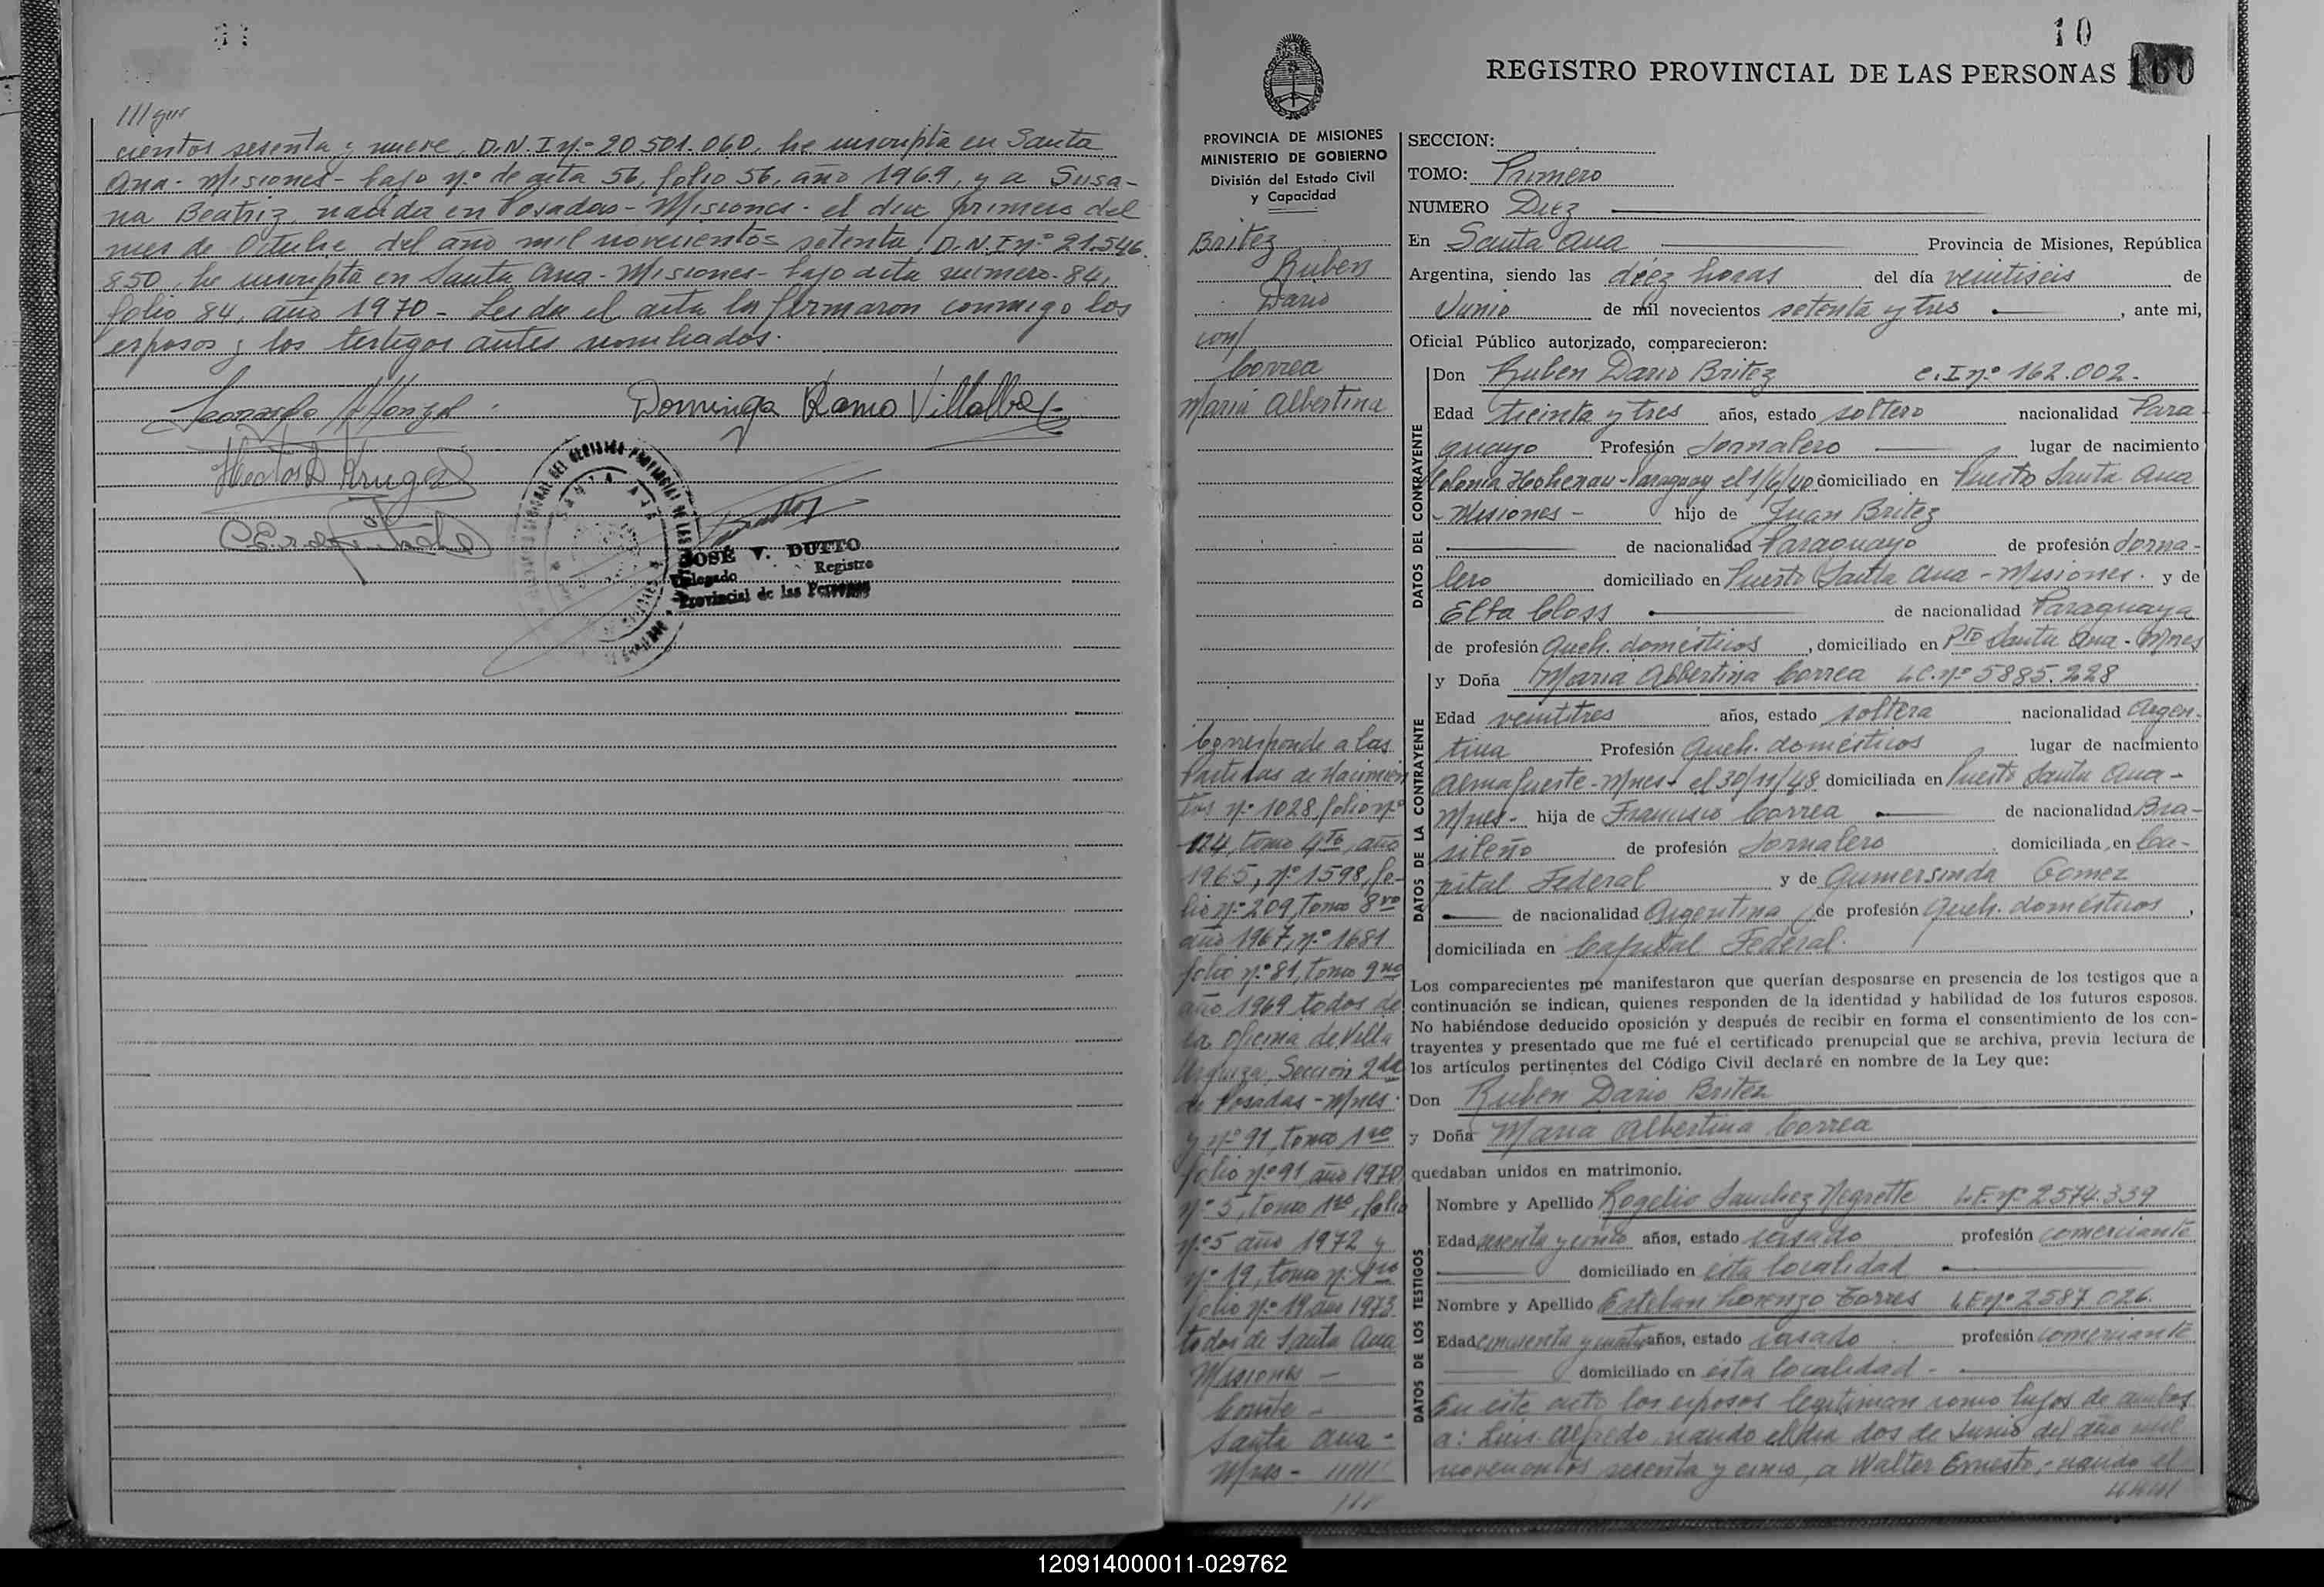 cientos sesenta y nueve, D.N.I nº 20.501.060, he inscripta en Santa
Ana - Misiones - bajo nº de acta 56, folio 56, año 1969, y a Susa-
na Beatriz, nacida en Posadas - Misiones - el dia primero del
mes de Octubre del año mil novecientos setenta, D.N.I nº 21.546.
850, he inscripta en Santa Ana - Misiones - bajo acta numero - 84,
folio 84, año 1970 - Leida el acta la firmaron conmigo los
esposos y los testigos antes nombrados.
Dominga Ramo Villalba
Hector D Kruger
SANTA ANA
JOSÉ V. DUTTO
Delegado Registro
Provincial de las Personas
10
REGISTRO PROVINCIAL DE LAS PERSONAS 160
PROVINCIA DE MISIONES
MINISTERIO DE GOBIERNO
División del Estado Civil
y Capacidad
Britez
Ruben
Dario
con/
Correa
Maria Albertina
Corresponde a las
Partidas de Nacimien
tos nº 1028, folio nº
124, tomo 4to, año
1965, nº 1598, fo-
lio nº 209, tomo 8vo
año 1967, nº 1681
folio nº 81, tomo 9no
año 1969 todos de
la oficina de Villa
Urquiza, Sección 2da
de Posadas - Mnes.
y nº 91, tomo 1ro
folio nº 91 año 1970,
nº 5, tomo 1ro, folio
nº 5 año 1972 y
nº 19, tomo nº 1ro
folio nº 19 año 1973
todos de Santa Ana
Misiones -
Conste -
Santa Ana -
Mnes -
SECCION:
TOMO: Primero
NUMERO Diez
En Santa Ana Provincia de Misiones, República
Argentina, siendo las diez horas del día veintiseis de
Junio de mil novecientos setenta y tres, ante mi,
Oficial Público autorizado, comparecieron:
DATOS DEL CONTRAYENTE
Don Ruben Dario Britez C.I nº 162.002.
Edad treinta y tres años, estado soltero nacionalidad Para
guayo Profesión Jornalero lugar de nacimiento
Colonia Hohenau - Paraguay el 1/6/40 domiciliado en Puerto Santa Ana
- Misiones - hijo de Juan Britez
de nacionalidad Paraguayo de profesión Jorna-
lero domiciliado en Puerto Santa Ana - Misiones. y de
Elba Closs de nacionalidad Paraguaya
de profesión Queh. domésticos, domiciliado en Pto Santa Ana - Mnes
DATOS DE LA CONTRAYENTE
y Doña Maria Albertina Correa L.C. nº 5885.228
Edad veintitres años, estado soltera nacionalidad Argen-
tina Profesión Queh. domésticos lugar de nacimiento
Almafuerte - Mnes - el 30/11/48 domiciliada en Puerto Santa Ana -
Mnes - hija de Francisco Correa de nacionalidad Bra-
sileño de profesión Jornalero domiciliada en Ca-
pital Federal y de Gumersinda Gomez
de nacionalidad Argentina, de profesión Queh. domésticos,
domiciliada en Capital Federal.
Los comparecientes me manifestaron que querían desposarse en presencia de los testigos que a
continuación se indican, quienes responden de la identidad y habilidad de los futuros esposos.
No habiéndose deducido oposición y después de recibir en forma el consentimiento de los con-
trayentes y presentado que me fué el certificado prenupcial que se archiva, previa lectura de
los artículos pertinentes del Código Civil declaré en nombre de la Ley que:
Don Ruben Dario Britez
y Doña Maria Albertina Correa
quedaban unidos en matrimonio.
DATOS DE LOS TESTIGOS
Nombre y Apellido Rogelio Sanchez Negrette L.E. nº 2574.339
Edad sesenta y cinco años, estado casado profesión comerciante
domiciliado en esta localidad
Nombre y Apellido Esteban Lorenzo Torres L.E nº 2587.026.
Edad cincuenta y cuatro años, estado casado profesión comerciante
domiciliado en esta localidad -
En este acto los esposos legitiman como hijos de ambos
a: Luis Alfredo, nacido el dia dos de Junio del año mil
novecientos sesenta y cinco, a Walter Ernesto, - nacido el
120914000011-029762